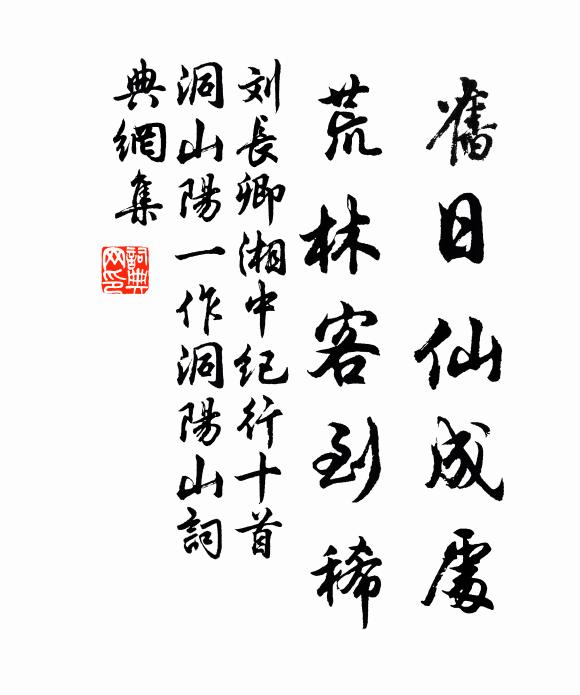 舊日仙成處
荒林客到稀
刘長卿湘中纪行十首
洞山陽一作洞陽山詞
典網集
詞典
网印